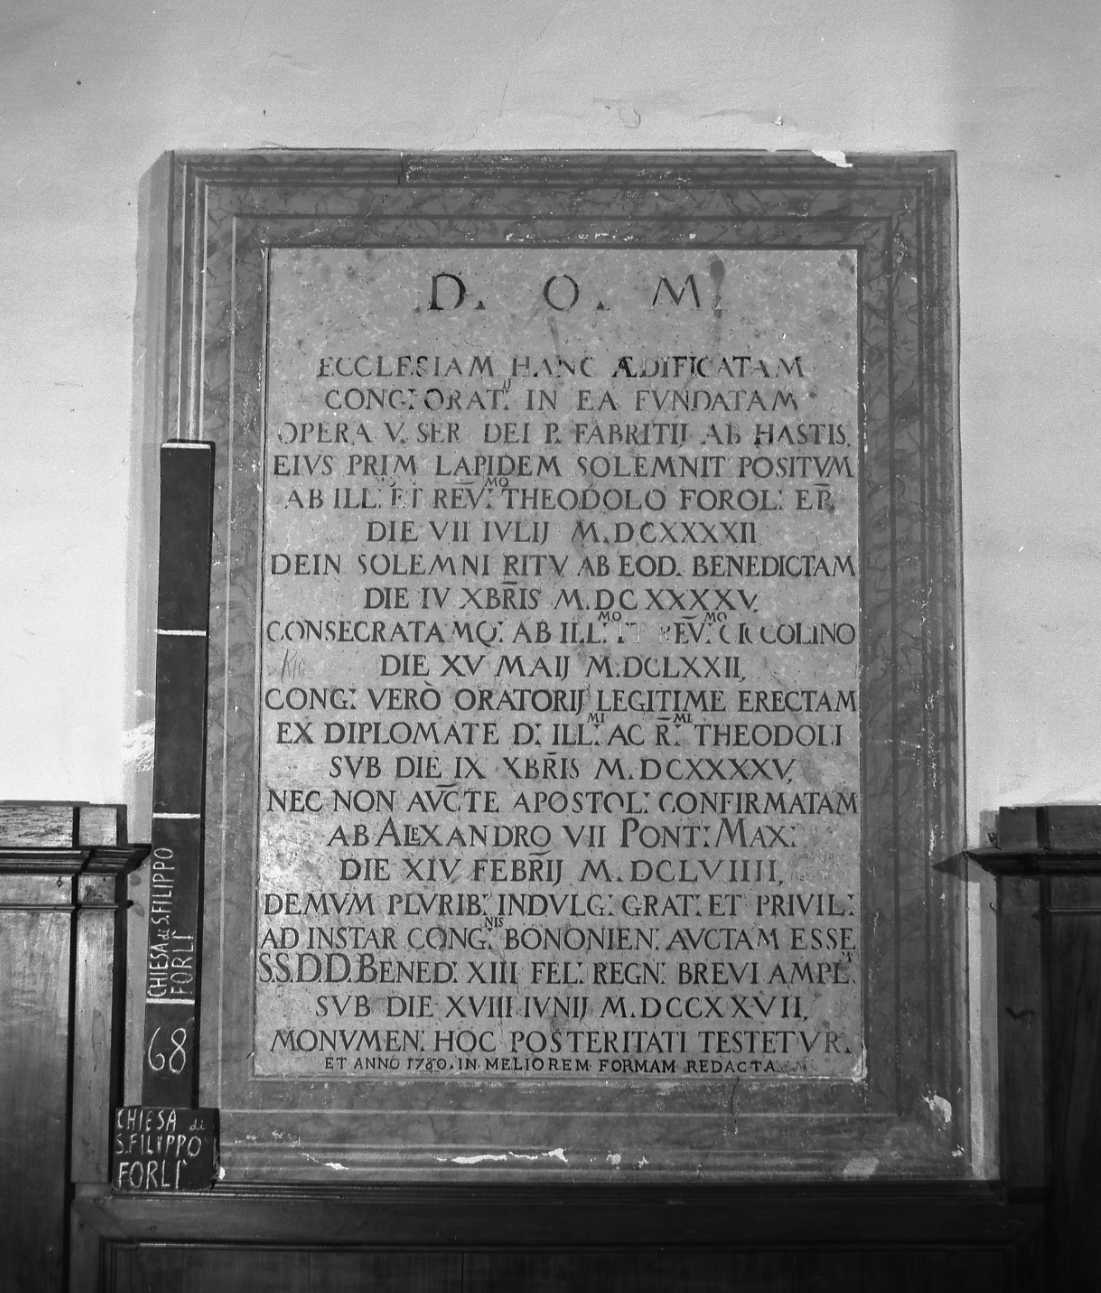 D. O. M
ECCLESIAM HANC ÆDIFICATAM
CONG: ORAT: IN EA FVNDATAM
OPERA V. SER DEI P. FABRITII AB HASTIS
EIVS PRIM LAPIDEM SOLEMNIT POSITVM
AB ILL: ET REV:MO THEODOLO FOROL: EP̅:
DIE VII IVLIJ M.DCXXXII
DEIN SOLEMNI RITV AB EOD: BENEDICTAM
DIE IV XBR̅IS M.DCXXXXV
CONSECRATAMQ: AB ILL:MO ET REV:MO CICCOLINO
DIE XV MAIJ M.DCLXXII
CONG: VERÒ ORATORIJ LEGITIME ERECTAM
EX DIPLOMATE D: ILL:MI AC R̅:MI THEODOLI
SVB DIE IX XBR̅IS M.DCXXXXV
NEC NON AV̅CTE APOSTOL: CONFIRMATAM
AB ALEXANDRO VII PONT: MAX:
DIE XIV FEB̅RIJ M.DCLVIIII
DEMVM PLVRIB: INDVLG: GRAT: ET PRIVIL:
AD INSTAR CONG:NIS BONONIEN: AVCTAM ESSE
SS.DD.BENED XIII FEL: REGN: BREVI AMPL:
SVB DIE XVIII IVNIJ M.DCCXXVII
MONVMEN: HOC POSTERITATI TESTETVR.
ET ANNO 1780. IN MELIOREM FORMAM REDACTA
CHIESA di
S. FILIPPO
FORLÌ
68
CHIESA di
S. FILIPPO
FORLÌ